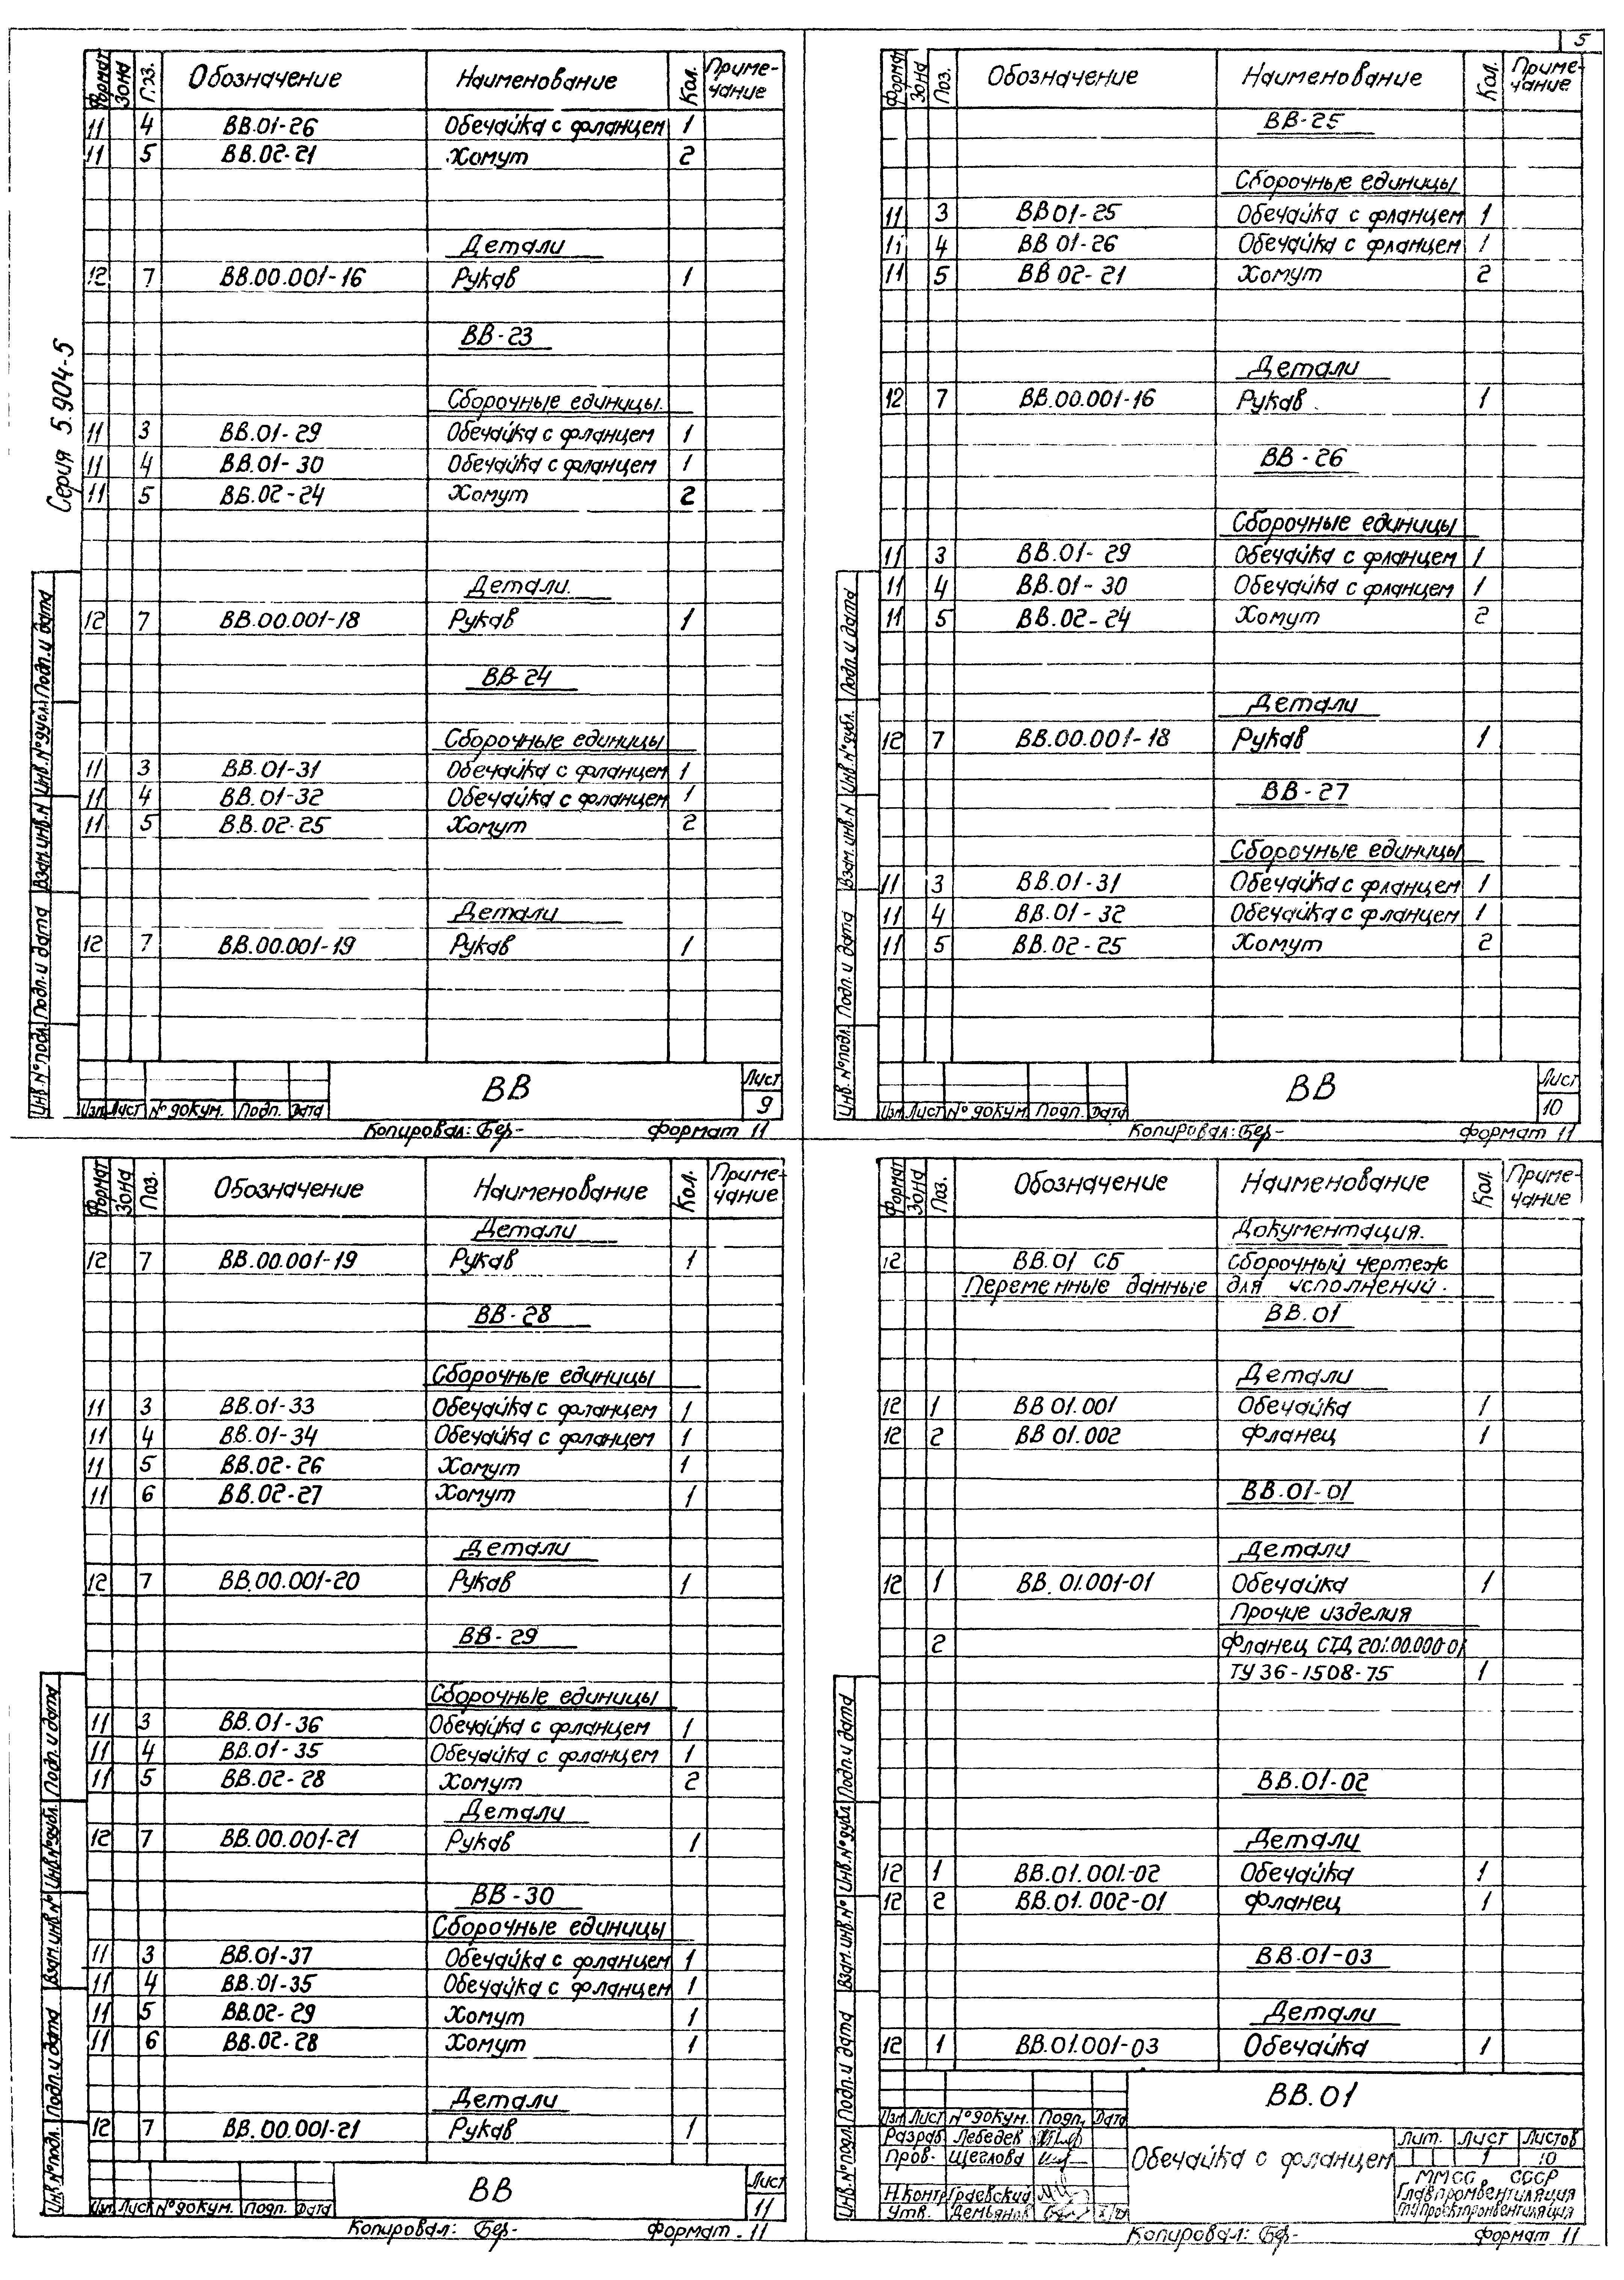 5
Серия 5.904-5
Формат Зона Поз. Обозначение Наименование Кол. Примечание
11 4 ВВ.01-26 Обечайка с фланцем 1
11 5 ВВ.02-21 Хомут 2
Детали
12 7 ВВ.00.001-16 Рукав 1
ВВ-23
Сборочные единицы.
11 3 ВВ.01-29 Обечайка с фланцем 1
11 4 ВВ.01-30 Обечайка с фланцем 1
11 5 ВВ.02-24 Хомут 2
Детали.
12 7 ВВ.00.001-18 Рукав 1
ВВ-24
Сборочные единицы
11 3 ВВ.01-31 Обечайка с фланцем 1
11 4 ВВ.01-32 Обечайка с фланцем 1
11 5 ВВ.02-25 Хомут 2
Детали
12 7 ВВ.00.001-19 Рукав 1
Инв.№подл. Подп.и дата Взам.инв.N Инв.№дубл. Подп.и дата
Изм Лист №докум. Подп. Дата
ВВ
Лист
9
Копировал: Бер-
Формат 11
Формат Зона Поз. Обозначение Наименование Кол. Примечание
ВВ-25
Сборочные единицы
11 3 ВВ 01-25 Обечайка с фланцем 1
11 4 ВВ 01-26 Обечайка с фланцем 1
11 5 ВВ 02-21 Хомут 2
Детали
12 7 ВВ.00.001-16 Рукав 1
ВВ-26
Сборочные единицы
11 3 ВВ.01-29 Обечайка с фланцем 1
11 4 ВВ.01-30 Обечайка с фланцем 1
11 5 ВВ.02-24 Хомут 2
Детали
12 7 ВВ.00.001-18 Рукав 1
ВВ-27
Сборочные единицы
11 3 ВВ.01-31 Обечайка с фланцем 1
11 4 ВВ.01-32 Обечайка с фланцем 1
11 5 ВВ.02-25 Хомут 2
Инв.№подл. Подп.и дата Взам.инв.N Инв.№дубл. Подп.и дата
Изм Лист №докум. Подп. Дата
ВВ
Лист
10
Копировал: Бер-
Формат 11
Формат Зона Поз. Обозначение Наименование Кол. Примечание
Детали
12 7 ВВ.00.001-19 Рукав 1
ВВ-28
Сборочные единицы
11 3 ВВ.01-33 Обечайка с фланцем 1
11 4 ВВ.01-34 Обечайка с фланцем 1
11 5 ВВ.02-26 Хомут 1
11 6 ВВ.02-27 Хомут 1
Детали
12 7 ВВ.00.001-20 Рукав 1
ВВ-29
Сборочные единицы
11 3 ВВ.01-36 Обечайка с фланцем 1
11 4 ВВ.01-35 Обечайка с фланцем 1
11 5 ВВ.02-28 Хомут 2
Детали
12 7 ВВ.00.001-21 Рукав 1
ВВ-30
Сборочные единицы
11 3 ВВ.01-37 Обечайка с фланцем 1
11 4 ВВ.01-35 Обечайка с фланцем 1
11 5 ВВ.02-29 Хомут 1
11 6 ВВ.02-28 Хомут 1
Детали
12 7 ВВ.00.001-21 Рукав 1
Инв.№подл. Подп.и дата Взам.инв.№ Инв.№дубл. Подп.и дата
Изм Лист №докум. Подп. Дата
ВВ
Лист
11
Копировал: Бер-
Формат 11
Формат Зона Поз. Обозначение Наименование Кол. Примечание
Документация.
12 ВВ.01 СБ Сборочный чертеж
Переменные данные для исполнений.
ВВ.01
Детали
12 1 ВВ 01.001 Обечайка 1
12 2 ВВ 01.002 Фланец 1
ВВ.01-01
Детали
12 1 ВВ.01.001-01 Обечайка 1
Прочие изделия
2 Фланец СТД 201.00.000-01
ТУ 36-1508-75 1
ВВ.01-02
Детали
12 1 ВВ.01.001-02 Обечайка 1
12 2 ВВ.01.002-01 Фланец 1
ВВ.01-03
Детали
12 1 ВВ.01.001-03 Обечайка 1
Инв.№подл. Подп.и дата Взам.инв.№ Инв.№дубл Подп.и дата
ВВ.01
Изм Лист №докум. Подп. Дата
Разраб Лебедев
Пров. Щеглова
Н.Контр Граевский
Утв. Демьянов
Обечайка с фланцем
Лит. Лист Листов
1 10
ММСС СССР
Главпромвентиляция
Копировал: Бер-
Формат 11